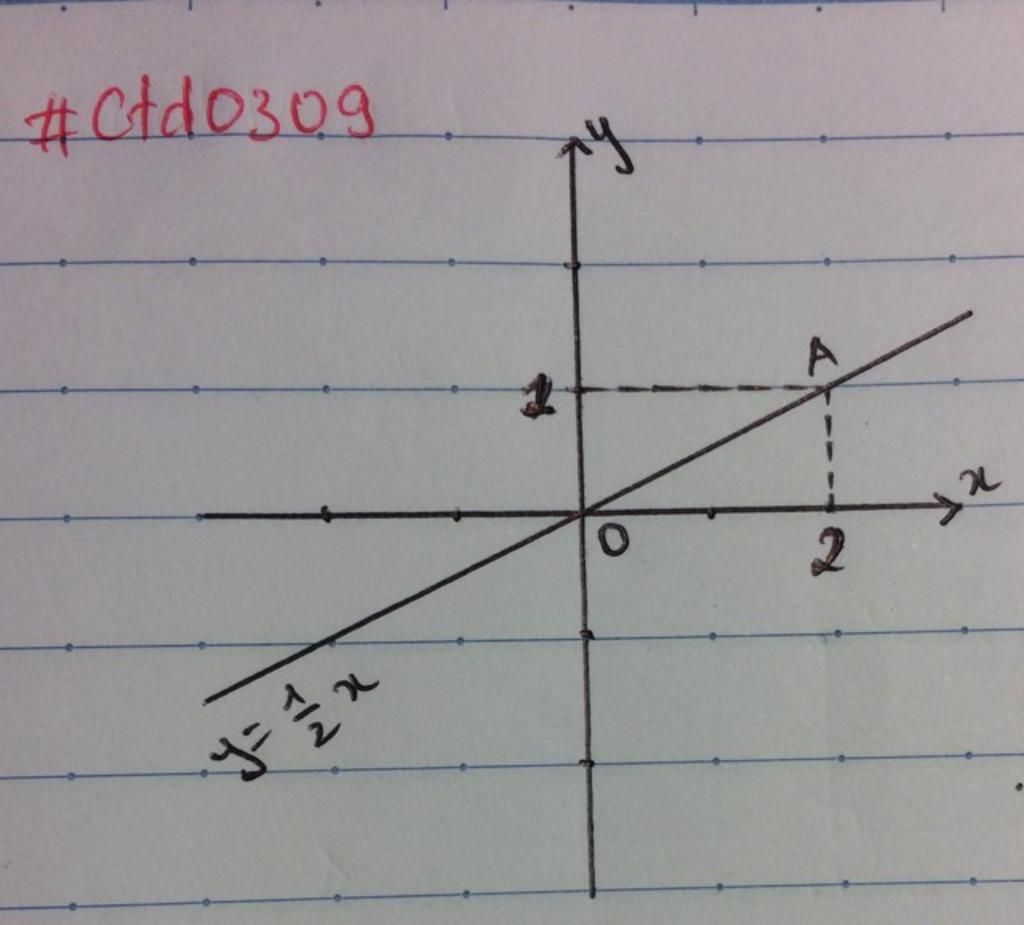 #Ctd0309
y
A
1
x
O
2
y = 1/2 x